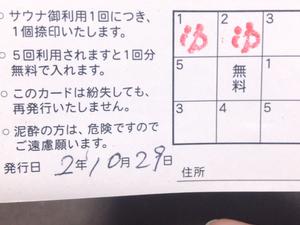 ○ サウナ御利用1回につき、
1個捺印いたします。
○ 5回利用されますと1回分
無料で入れます。
○ このカードは紛失しても、
再発行いたしません。
○ 泥酔の方は、危険ですので
ご遠慮願います。
発行日 2年10月29日
1 2 3
ゆ ゆ
5 無料 1
3 4 5
住所